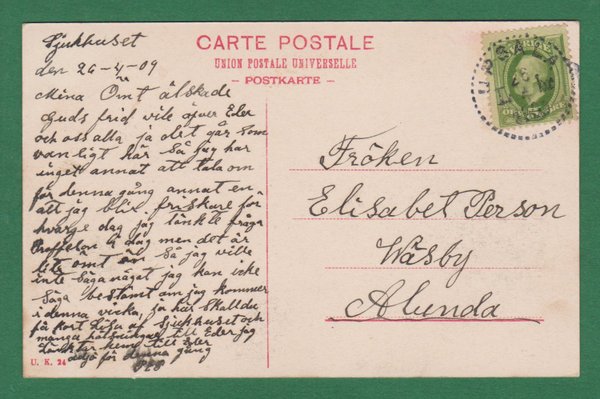 Sjukhuset
den 26-4-09
Mina Ömt älskade
Guds frid vile öfver Eder
och oss alla ja det går som
vanligt här Så jag har
inget annat att tala om
för denna gång annat en
att jag blir friskare för
hvarje dag jag tänkte fråga
Proffesen i dag men det är
lite ömt Så jag ville
inte säga något jag kan icke
Säga bestämt om jag kommer
i denna vicka, ja här Skall du
få kort af Sjukhuset och
många hälsningar till Eder jag
hem till Eder
adjö för denna gång
CARTE POSTALE
UNION POSTALE UNIVERSELLE
– POSTKARTE –
UPSALA
Fröken
Elisabet Person
Wäsby
Alunda
U. K. 24